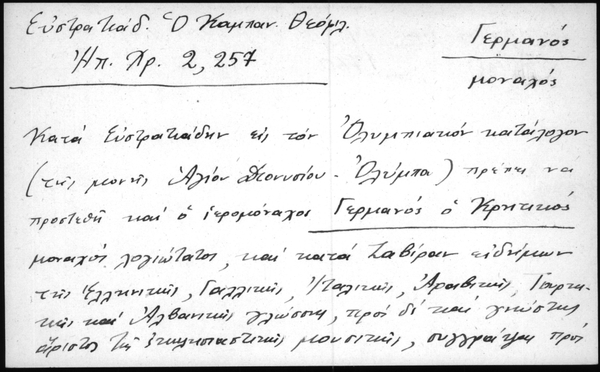 Εὐστρατιάδ. Ὁ Καμπαν. Θεόφιλ.
Ἠπ. Χρ. 2, 257
Γερμανός
μοναχός
Κατά Εὐστρατιάδην εἰς τόν Ὀλυμπιακόν κατάλογον
(τῆς μονῆς Ἁγίου Διονυσίου - Ὀλύμπου) πρέπει νά
προστεθῆ καί ὁ ἱερομόναχος Γερμανός ὁ Κρητικός
μοναχός λογιώτατος, καί κατά Ζαβίραν εἰδήμων
τῆς Ἑλληνικῆς, Γαλλικῆς, Ἰταλικῆς, Ἀραβικῆς, Τουρκι-
κῆς καί Ἀλβανικῆς γλώσσης, πρός δέ καί γνώστης
ἄριστος τῆς ἐκκλησιαστικῆς μουσικῆς, συγγράψας πρός